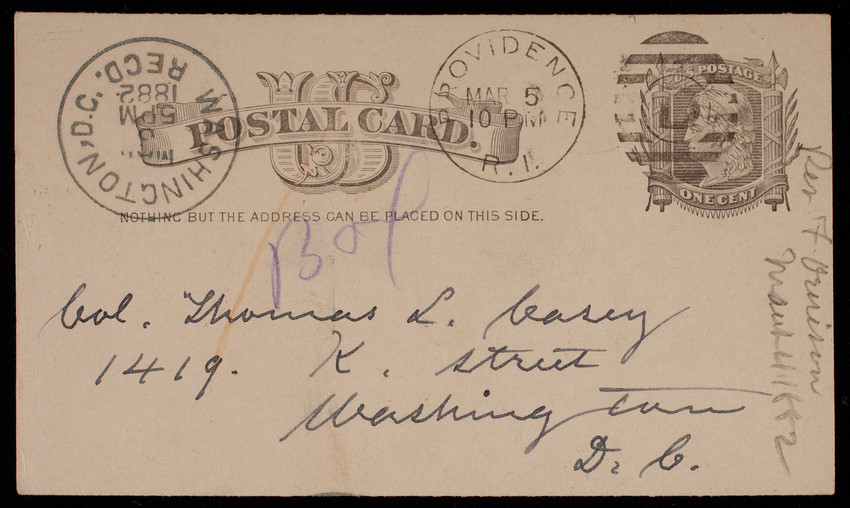 WASHINGTON, D.C.
5 PM
1882
RECD.
US
POSTAL CARD.
PROVIDENCE
MAR 5
10 PM
R. I.
U.S. POSTAGE
ONE CENT
NOTHING BUT THE ADDRESS CAN BE PLACED ON THIS SIDE.
Col. Thomas L. Casey
1419. K. street
Washington
D. C.
Rev. F
1882